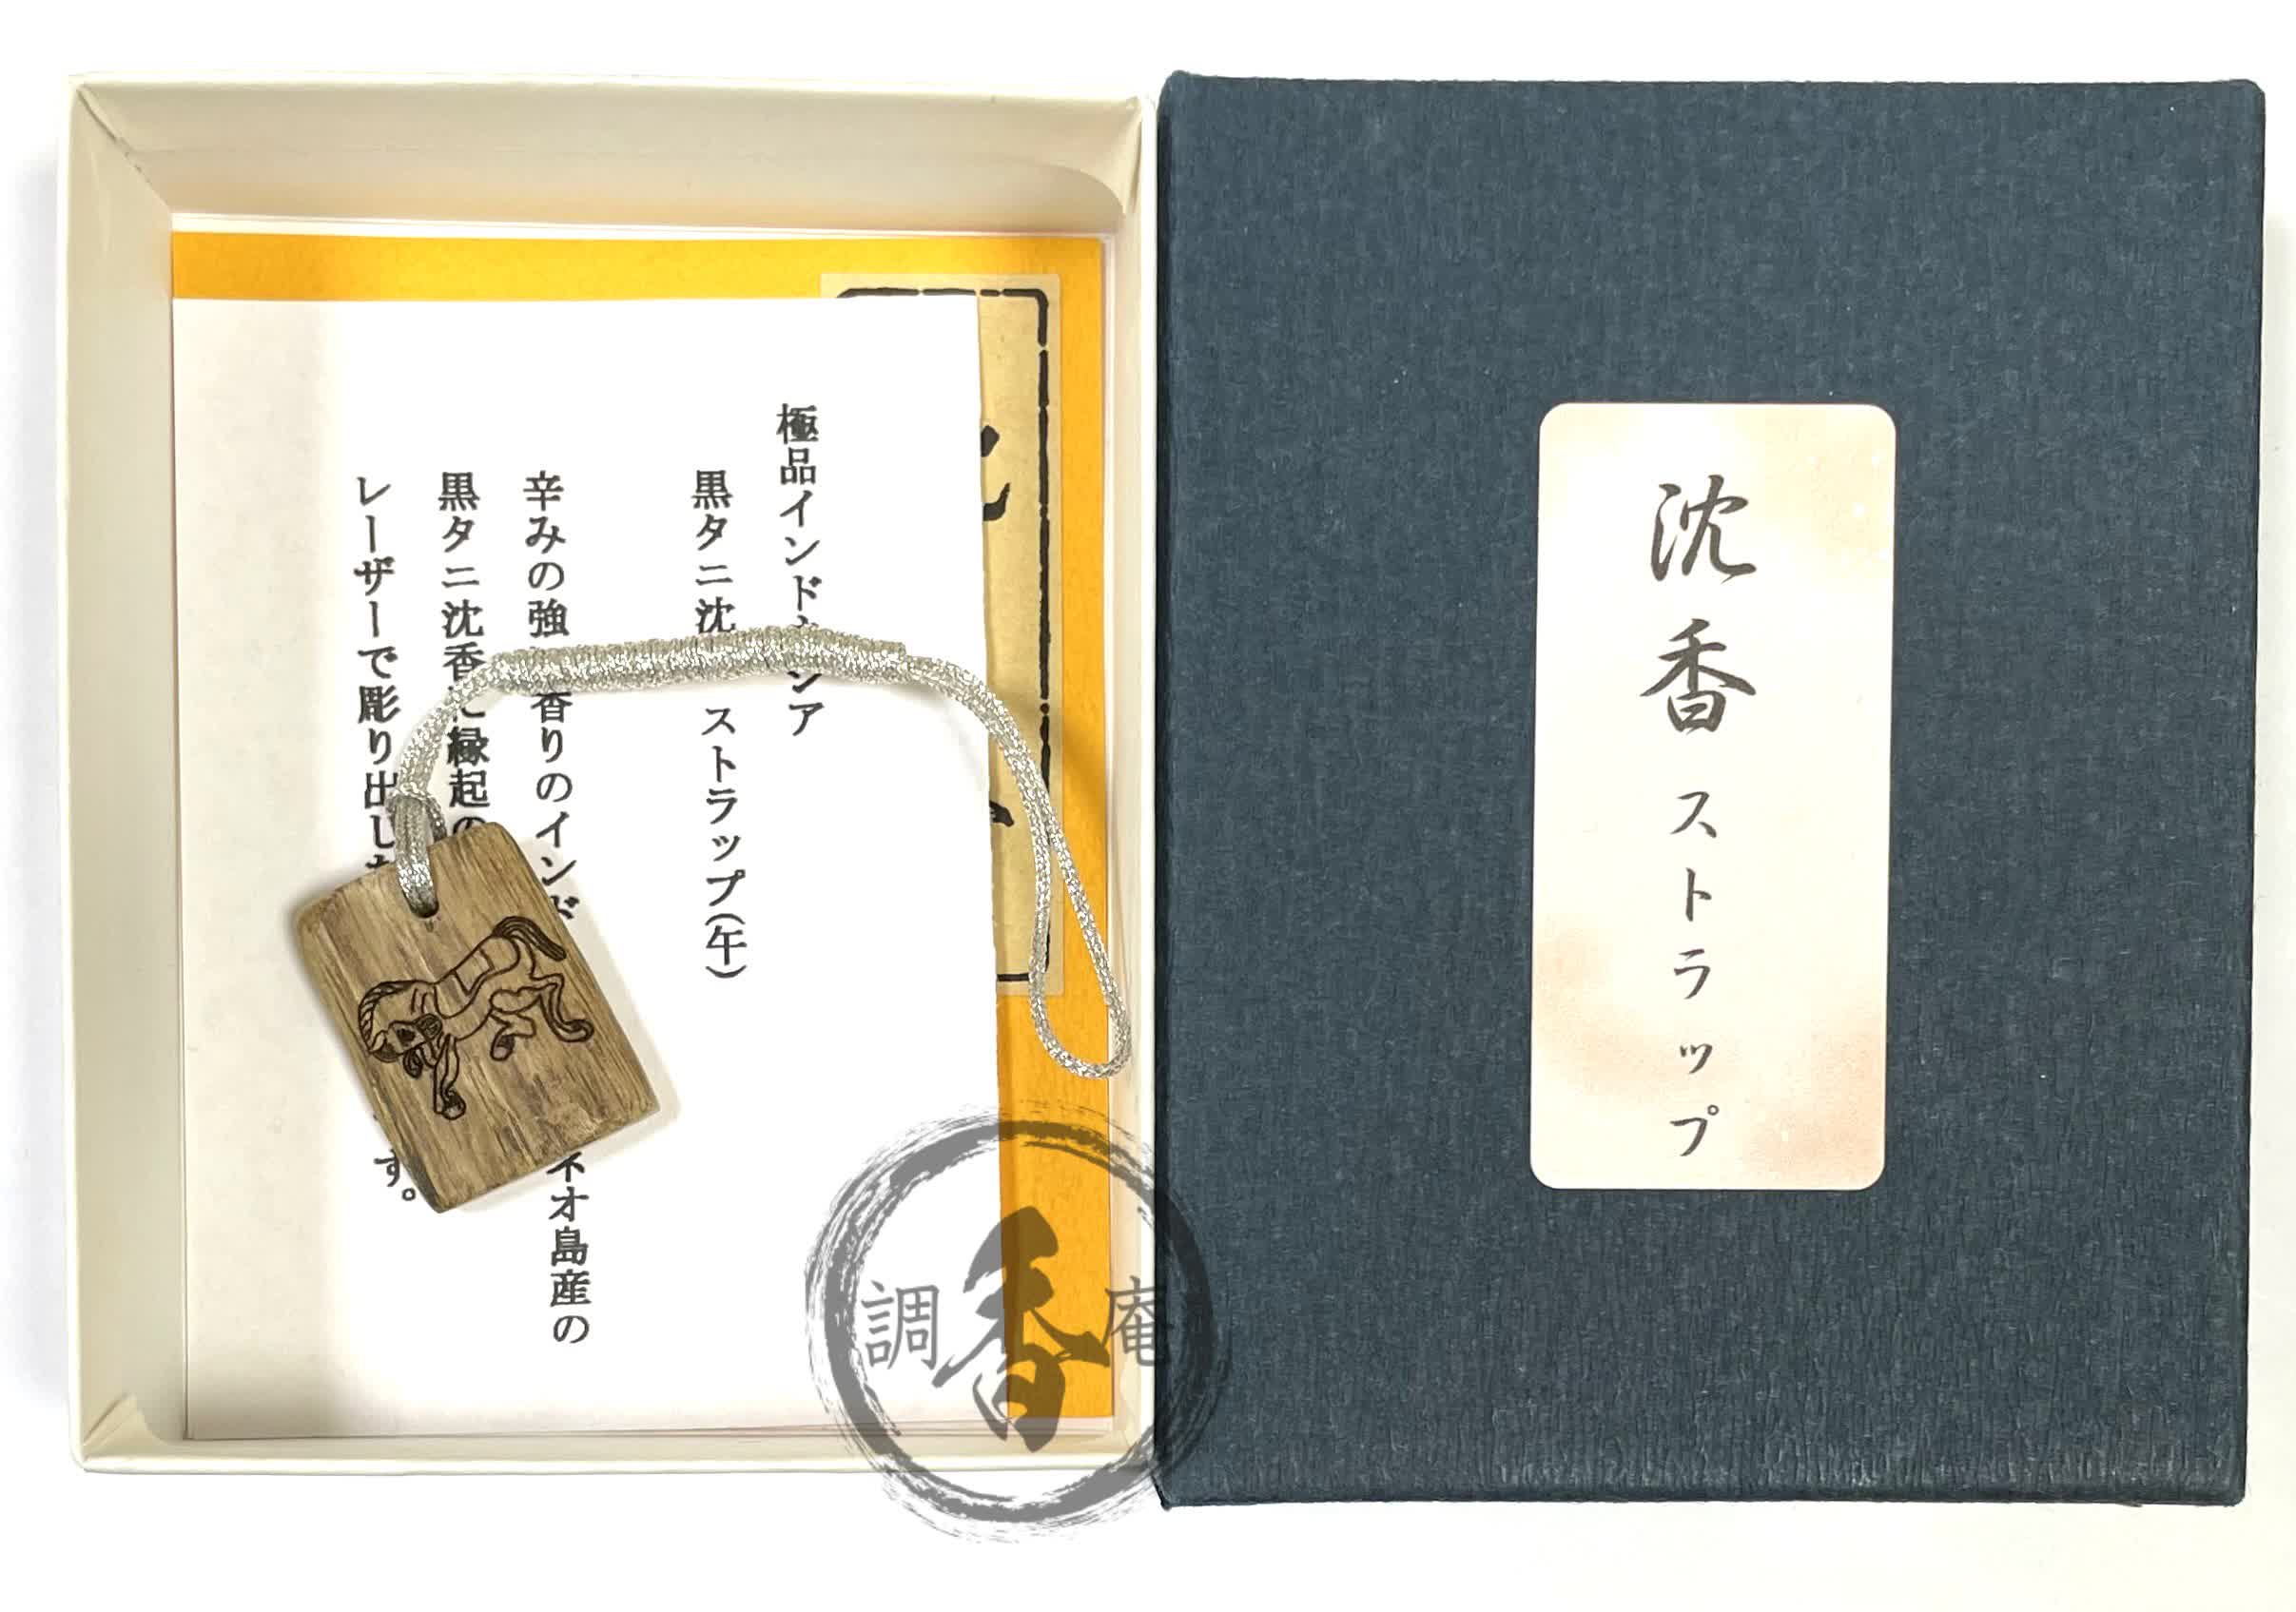 極品インドネシア
黒タニ沈 ストラップ(午)
辛みの強 香りのインド ネオ島産の
黒タニ沈香に縁起の
レーザーで彫り出した す。
沈香ストラップ
調香庵